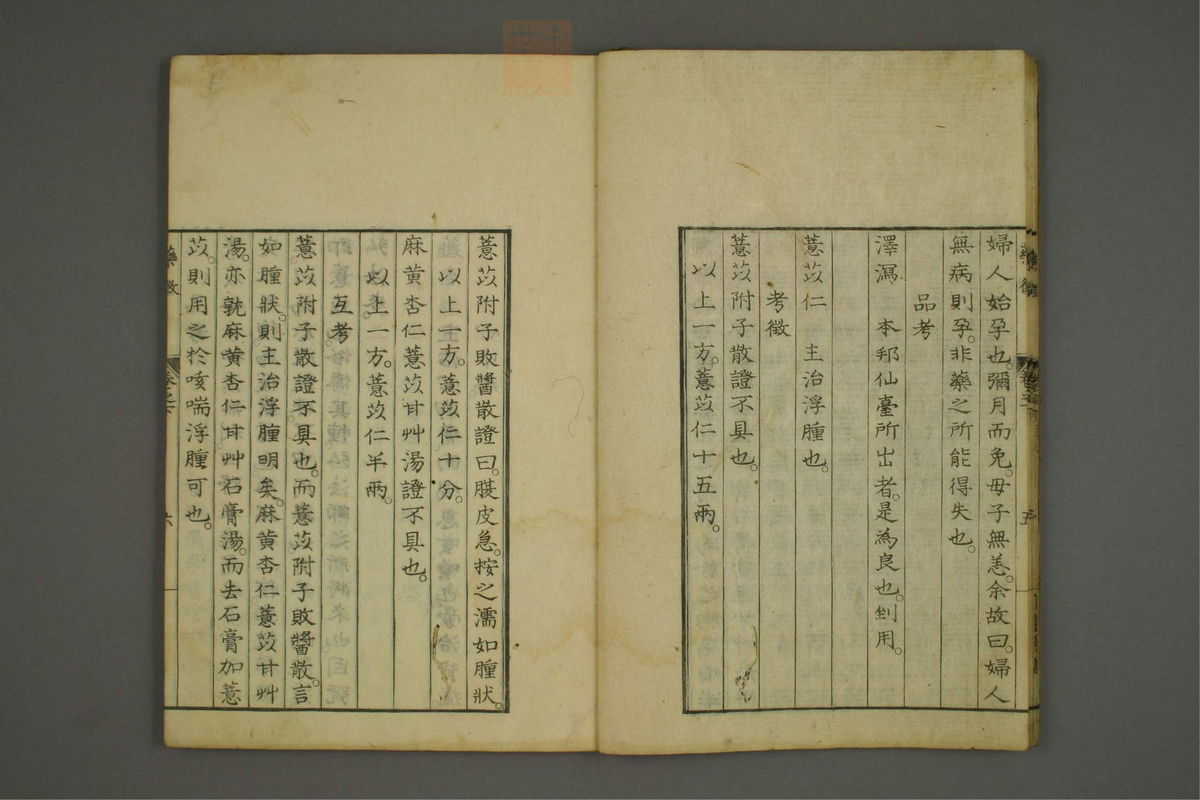 婦人始孕也。彌月而免。母子無恙。余故曰。婦人
無病則孕。非藥之所能得失也。
品考
澤瀉　本邦仙臺所出者。是為良也。剉用。
薏苡仁　主治浮腫也。
考徵
薏苡附子散證不具也。
以上一方。薏苡仁十五兩。
薏苡附子敗醬散證曰。腹皮急。按之濡如腫狀。
以上一方。薏苡仁十分。
麻黃杏仁薏苡甘艸湯證不具也。
以上一方。薏苡仁半兩。
互考
薏苡附子散證不具也。而薏苡附子敗醬散。言
如腫狀。則主治浮腫明矣。麻黃杏仁薏苡甘艸
湯。亦就麻黃杏仁甘艸石膏湯。而去石膏加薏
苡。則用之於咳喘浮腫可也。
藥徵
卷之下
六